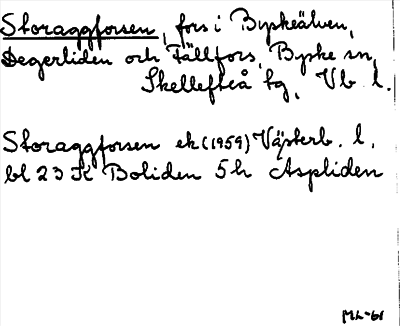 Storaggforsen, fors i Byskeälven,
Degerliden och Fällfors, Byske sn,
Skellefteå tg, Vb l.
Storaggforsen ek (1959) Västerb. l.
bl 23 K Boliden 5h Aspliden
ML-61